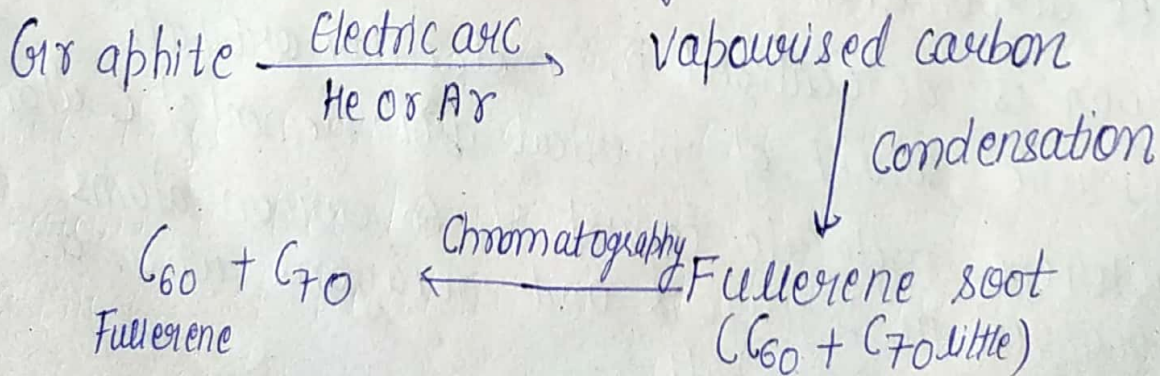 Graphite Electric arc vapourised carbon
He Or Ar
Condensation
C60 + C70 Chromatography Fullerene soot
Fullerene (C60 + C70 little)